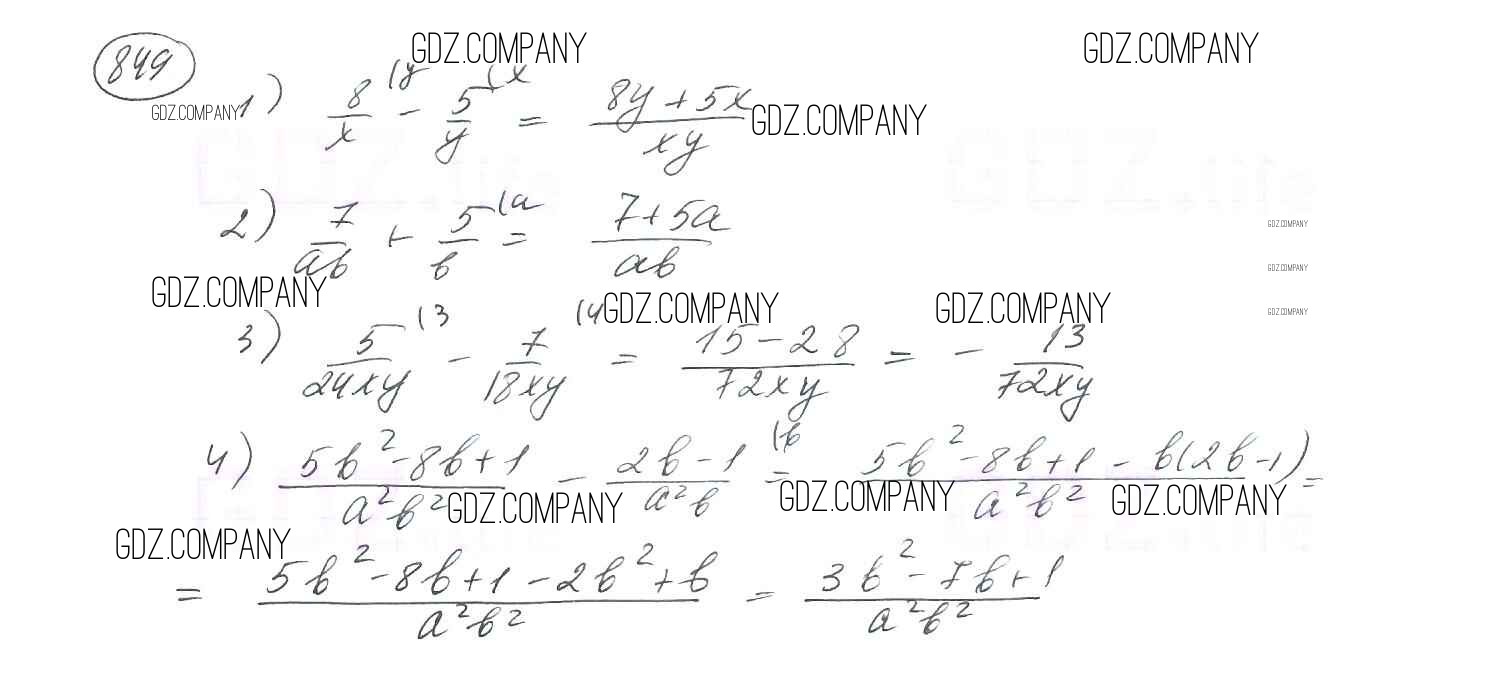 849
GDZ.COMPANY GDZ.COMPANY
GDZ.COMPANY
1) 8/x (y - 5/y (x = 8y + 5x / xy
GDZ.COMPANY
2) 7/ab + 5/b (a = 7 + 5a / ab
GDZ.COMPANY
GDZ.COMPANY
GDZ.COMPANY
GDZ.COMPANY GDZ.COMPANY GDZ.COMPANY
3) 5/24xy (3 - 7/18xy (4 = 15 - 28 / 72xy = - 13/72xy
4) 5b² - 8b + 1 / a²b² - 2b - 1 / a²b (b = 5b² - 8b + 1 - b(2b - 1) / a²b² =
GDZ.COMPANY GDZ.COMPANY GDZ.COMPANY
GDZ.COMPANY
= 5b² - 8b + 1 - 2b² + b / a²b² = 3b² - 7b + 1 / a²b²